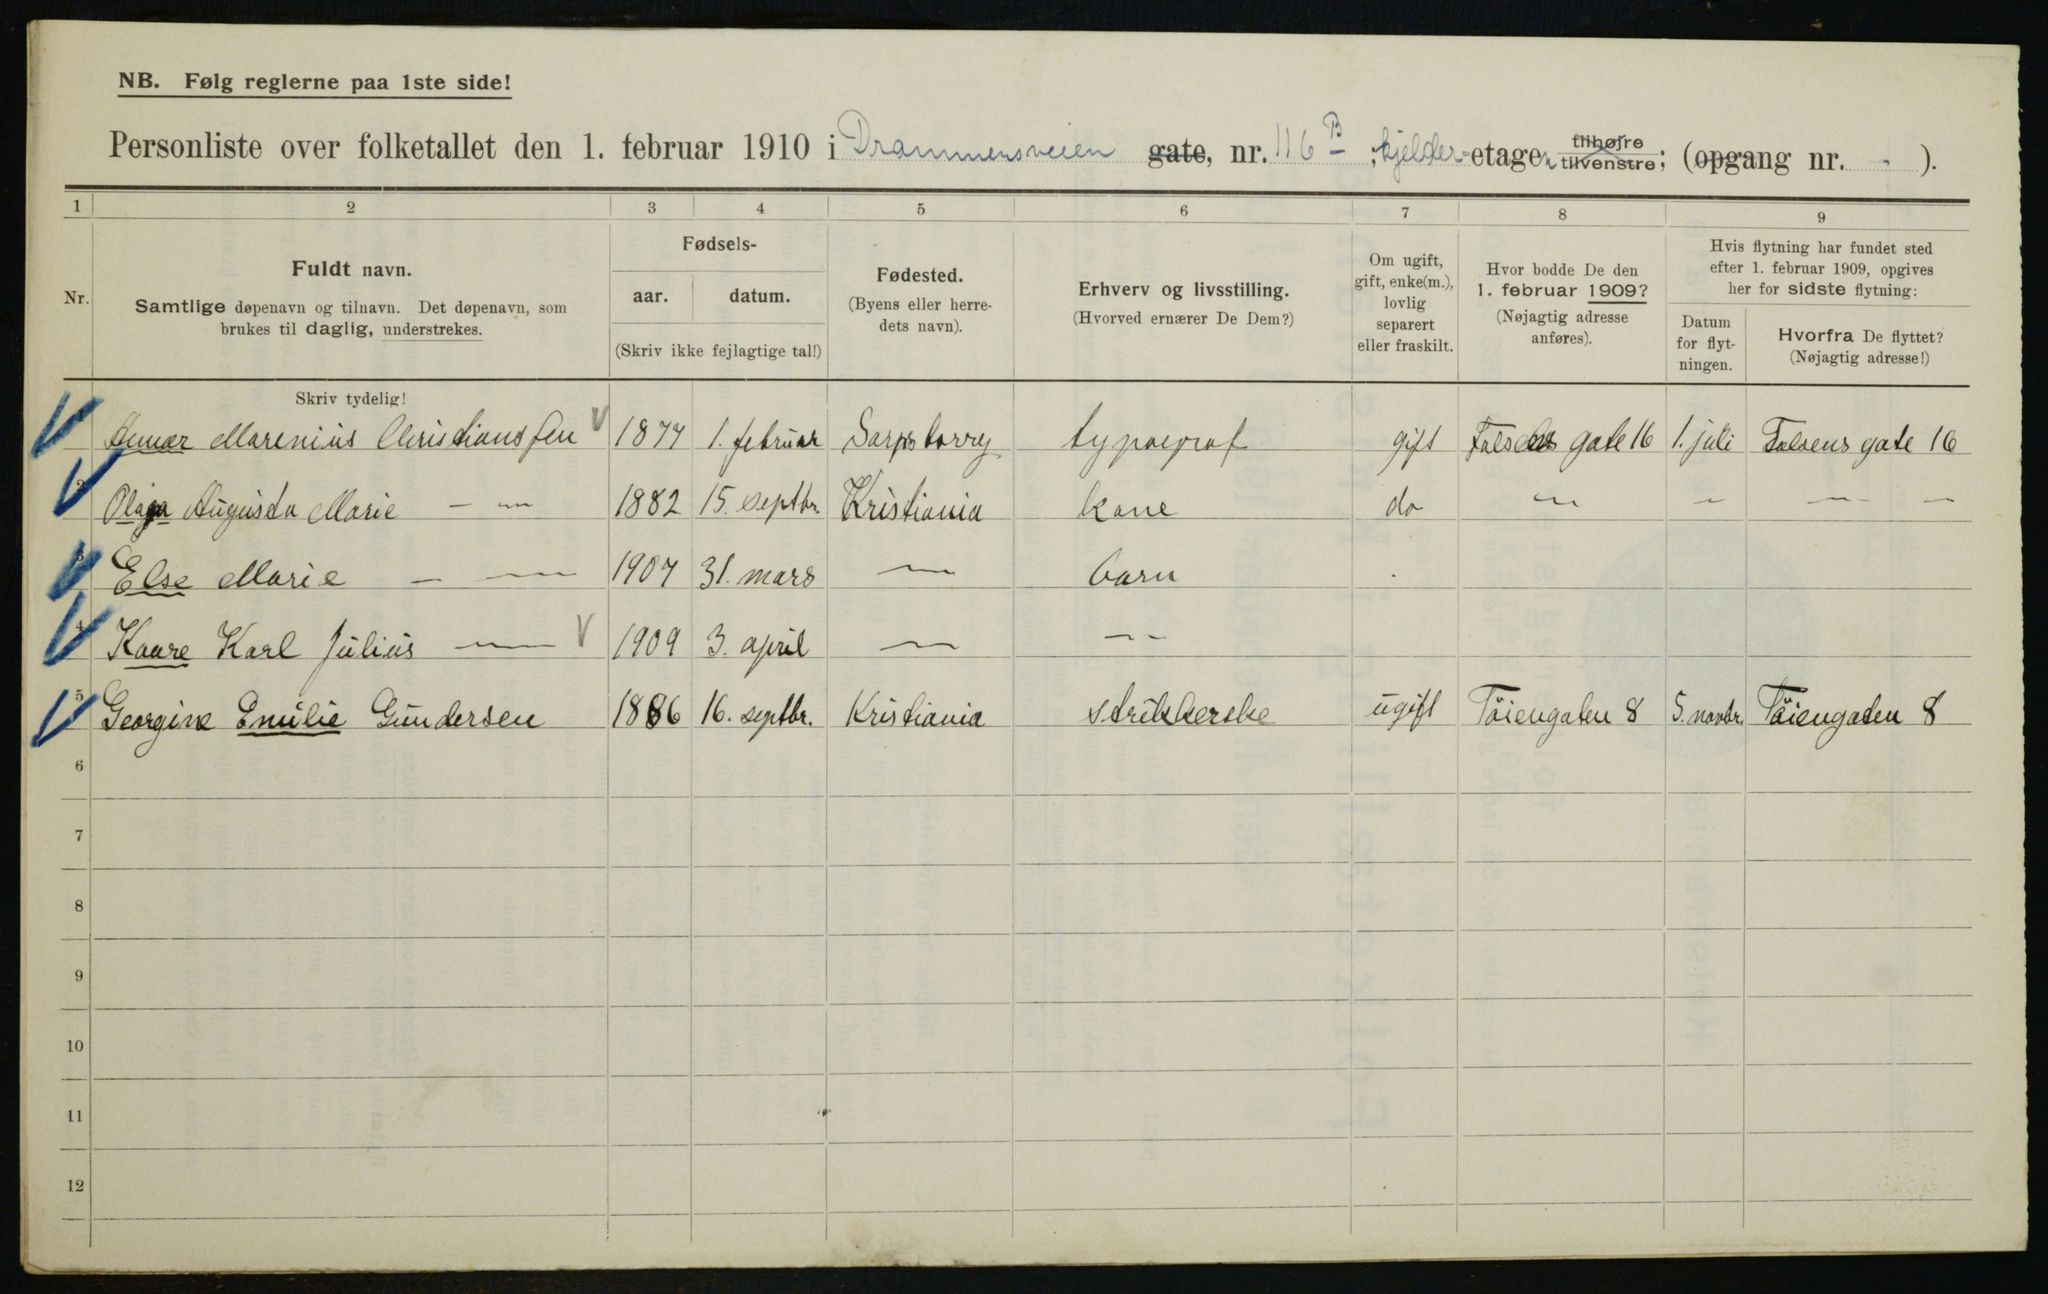 NB. Følg reglerne paa 1ste side!
Personliste over folketallet den 1. februar 1910 i Drammensveien gate, nr. 116 B ; kjelder-etagen tilhøjre tilvenstre; (opgang nr. - ).
1 2 3 4 5 6 7 8 9
Nr.
Fuldt navn.
Samtlige døpenavn og tilnavn. Det døpenavn, som
brukes til daglig, understrekes.
Fødsels-
aar. datum.
(Skriv ikke fejlagtige tal!)
Fødested.
(Byens eller herre-
dets navn).
Erhverv og livsstilling.
(Hvorved ernærer De Dem?)
Om ugift,
gift, enke(m.),
lovlig
separert
eller fraskilt.
Hvor bodde De den
1. februar 1909?
(Nøjagtig adresse
anføres).
Hvis flytning har fundet sted
efter 1. februar 1909, opgives
her for sidste flytning:
Datum
for flyt-
ningen.
Hvorfra De flyttet?
(Nøjagtig adresse!)
Skriv tydelig!
Marenius Christiansen 1877 1. februar Sarpsborg typograf gift Falsens gate 16 1. juli Falsens gate 16
2 Olga Augusta Marie — — 1882 15. septbr. Kristiania kone do — — — —
3 Else Marie — — 1907 31. mars — barn
4 Kaare Karl Julius — 1909 3. april — —
5 Georgine Emilie Gundersen 1886 16. septbr. Kristiania strikkerske ugift Töiengaten 8 5. novbr. Töiengaten 8
6
7
8
9
10
11
12